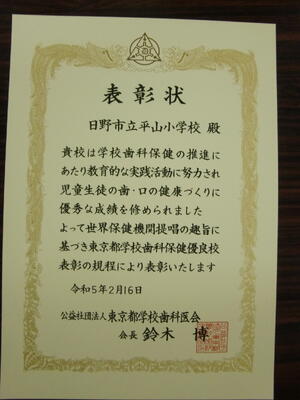 表彰状
日野市立平山小学校 殿
貴校は学校歯科保健の推進に
あたり教育的な実践活動に努力され
児童生徒の歯・口の健康づくりに
優秀な成績を修められました
よって世界保健機関提唱の趣旨に
基づき東京都学校歯科保健優良校
表彰の規程により表彰いたします
令和5年2月16日
公益社団法人 東京都学校歯科医会
会長 鈴木 博